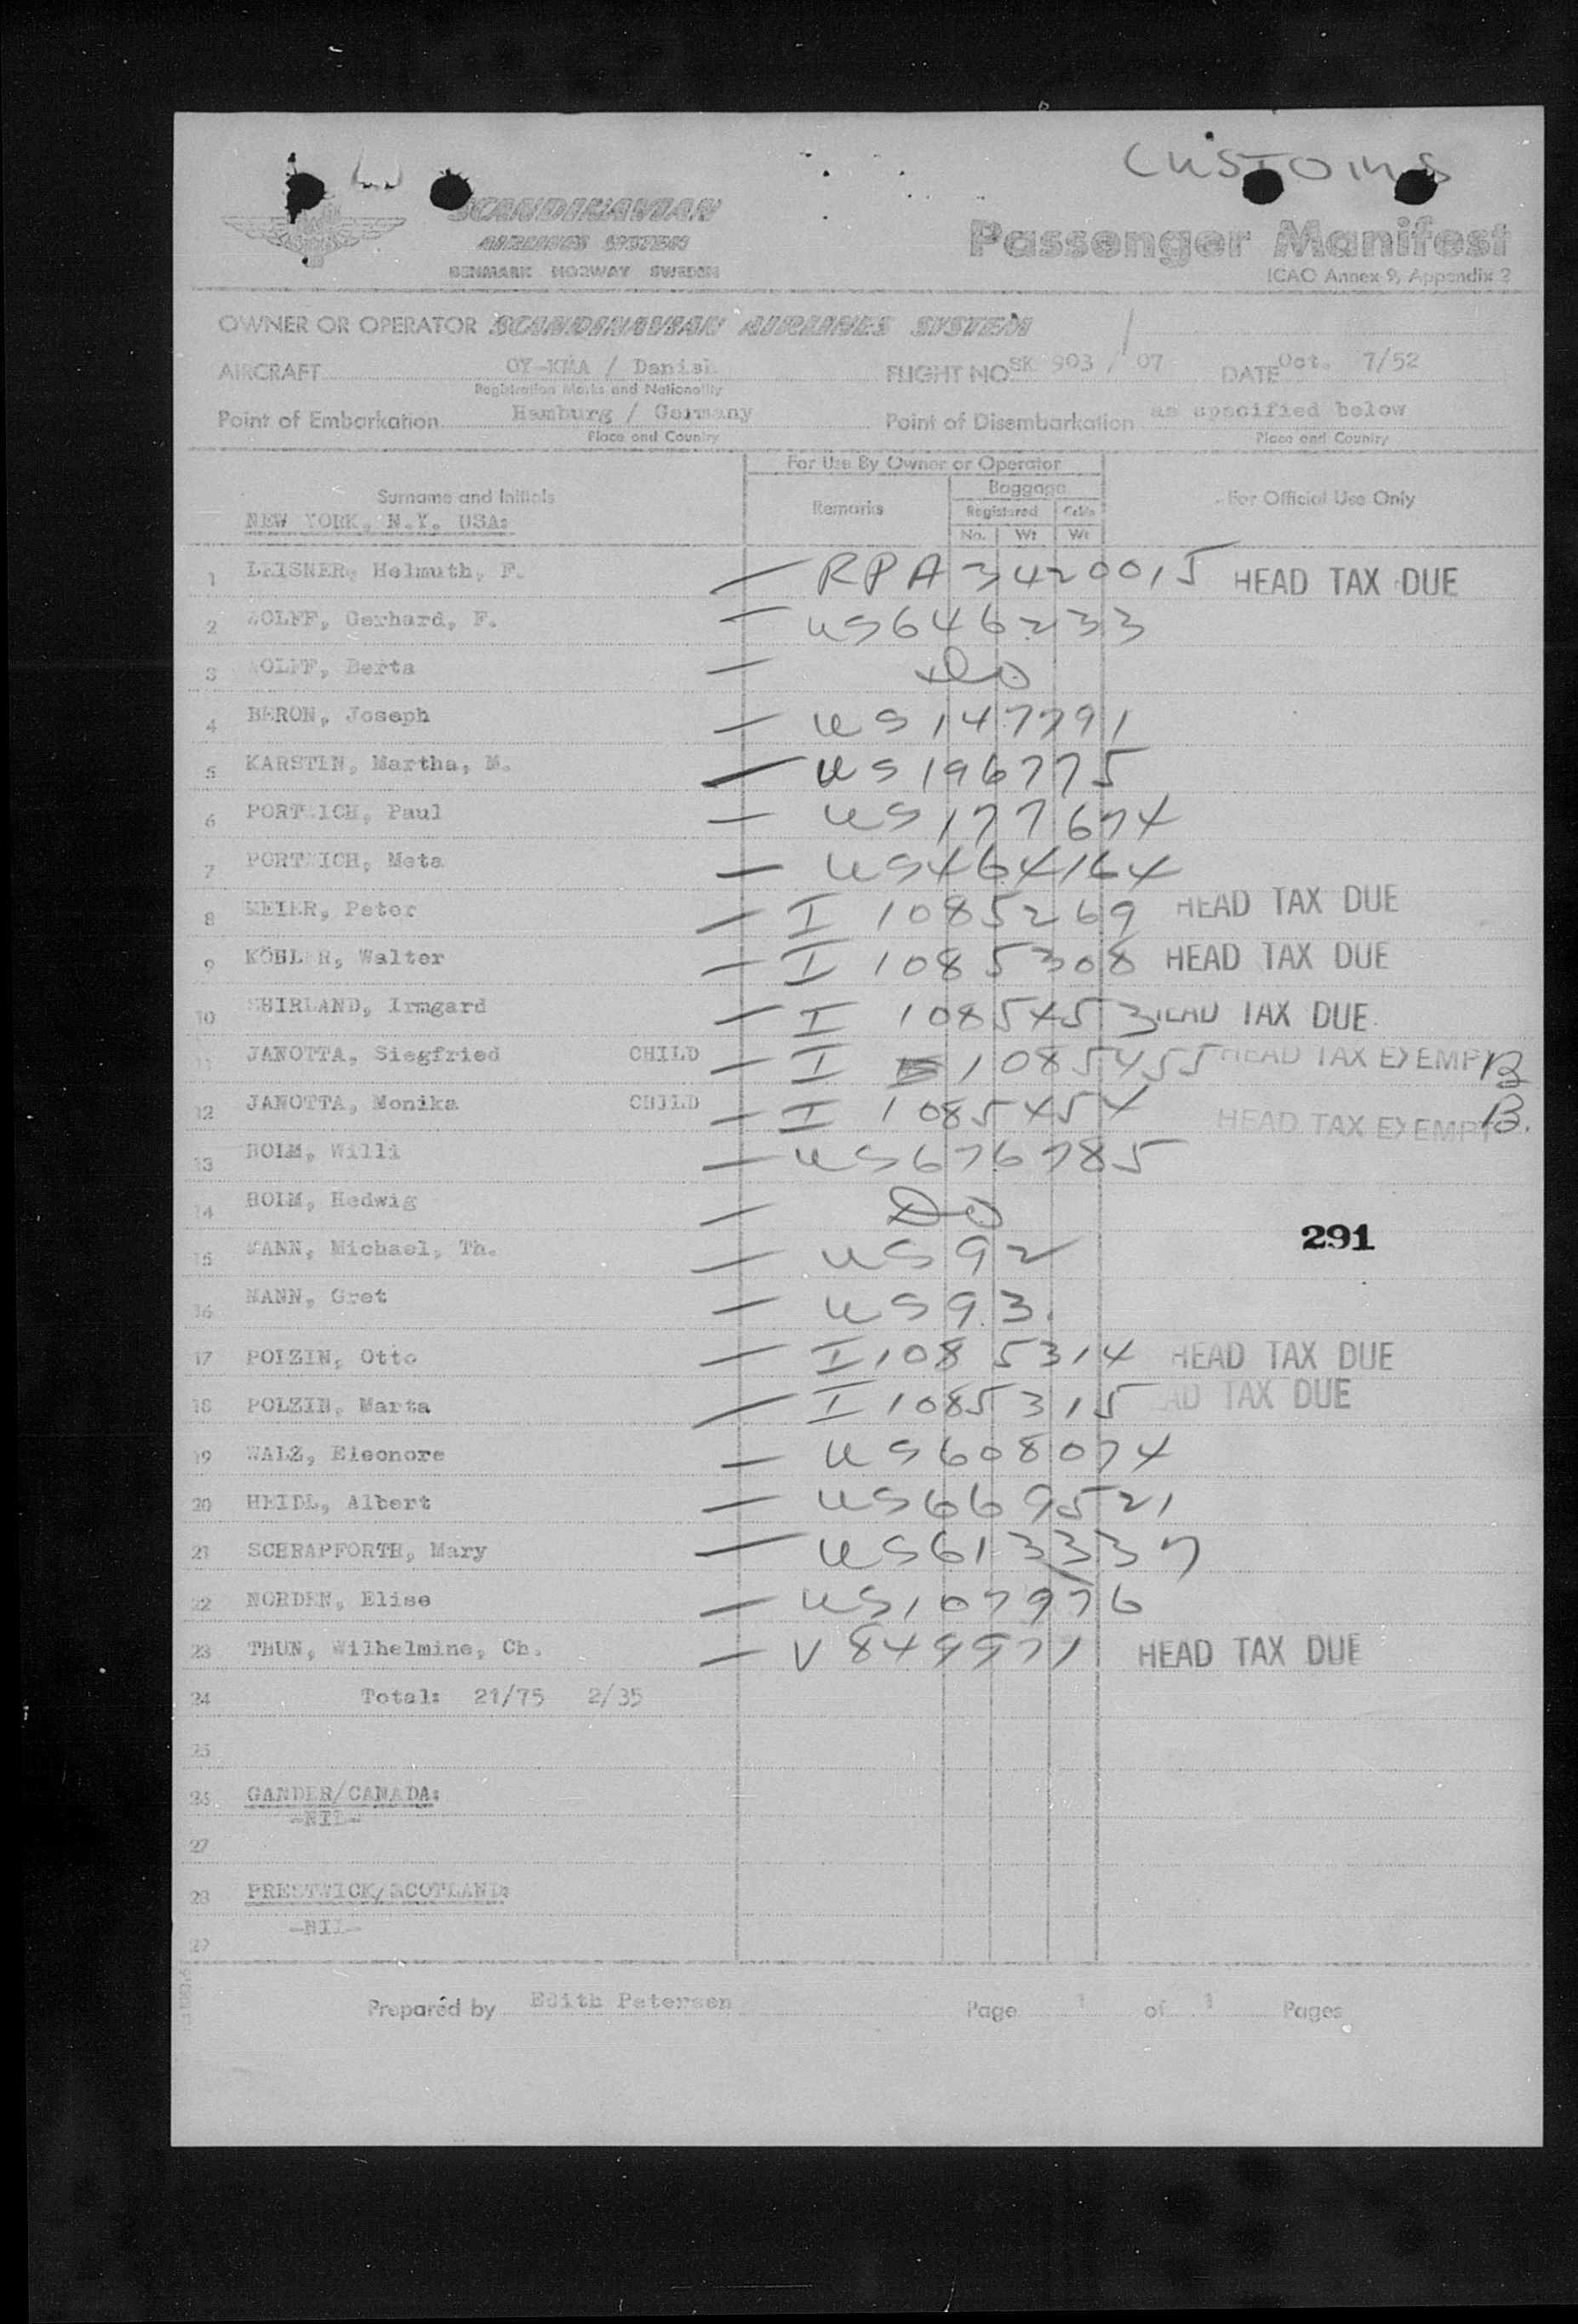 CUSTOMS
SCANDINAVIAN
AIRLINES SYSTEM
DENMARK NORWAY SWEDEN
Passenger Manifest
ICAO Annex 9, Appendix 2
OWNER OR OPERATOR SCANDINAVIAN AIRLINES SYSTEM
AIRCRAFT OY-KMA / Danish FLIGHT NO SK 903 / 07 DATE Oct. 7/52
Registration Marks and Nationality
Point of Embarkation Hamburg / Germany Point of Disembarkation as specified below
Place and Country Place and Country
For Use By Owner or Operator
Surname and Initials Remarks Baggage For Official Use Only
Registered Cabin
NEW YORK, N.Y. USA:
No. Wt Wt
1 LEISNER, Helmuth, F. — RPA 3420015 HEAD TAX DUE
2 WOLFF, Gerhard, F. — US 646233
3 WOLFF, Berta — DO
4 BERON, Joseph — US 147791
5 KARSTEN, Martha, M. — US 196775
6 PORTWICH, Paul — US 177674
7 PORTWICH, Meta — US 464164
8 MEIER, Peter — I 1085269 HEAD TAX DUE
9 KÖHLER, Walter — I 1085308 HEAD TAX DUE
10 SHIRLAND, Irmgard — I 1085453 HEAD TAX DUE
11 JANOTTA, Siegfried CHILD — I 1085455 HEAD TAX EXEMPT B
12 JANOTTA, Monika CHILD — I 1085454 HEAD TAX EXEMPT B.
13 HOLM, Willi — US 676785
14 HOLM, Hedwig — DO
291
15 MANN, Michael, Th. — US 92
16 MANN, Gret — US 93.
17 POLZIN, Otto — I 1085314 HEAD TAX DUE
18 POLZIN, Marta — I 1085315 HEAD TAX DUE
19 WALZ, Eleonore — US 608074
20 HEIDL, Albert — US 669521
21 SCHRAPFORTH, Mary — US 613337
22 NORDEN, Elise — US 107976
23 THUN, Wilhelmine, Ch. — V 849971 HEAD TAX DUE
24 Total: 21/75 2/35
25
26 GANDER/CANADA:
-NIL-
27
28 PRESTWICK/SCOTLAND:
-NIL-
29
Prepared by Edith Petersen Page 1 of 1 Pages